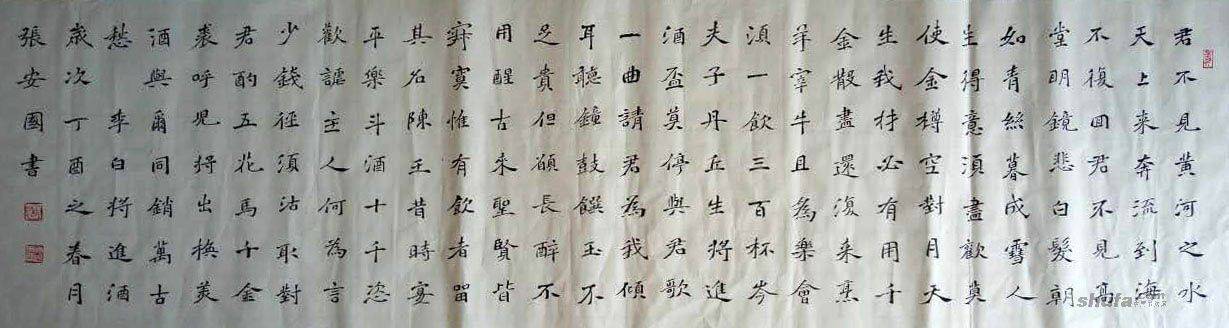 君不見黃河之水
天上來奔流到海
不復回君不見高
堂明鏡悲白髮朝
如青絲暮成雪人
生得意須盡歡莫
使金樽空對月天
生我材必有用千
金散盡還復来烹
羊宰牛且為樂會
須一飲三百杯岑
夫子丹丘生將進
酒盃莫停與君歌
一曲請君為我傾
耳聽鐘鼓饌玉不
足貴但願長醉不
用醒古来聖賢皆
寂寞惟有飲者留
其名陳王昔時宴
平樂斗酒十千恣
歡謔主人何為言
少錢徑須沽取對
君酌五花馬千金
裘呼兒將出換美
酒與爾同銷萬古
愁 李白將進酒
歲次丁酉之春月
張安國書
shufa